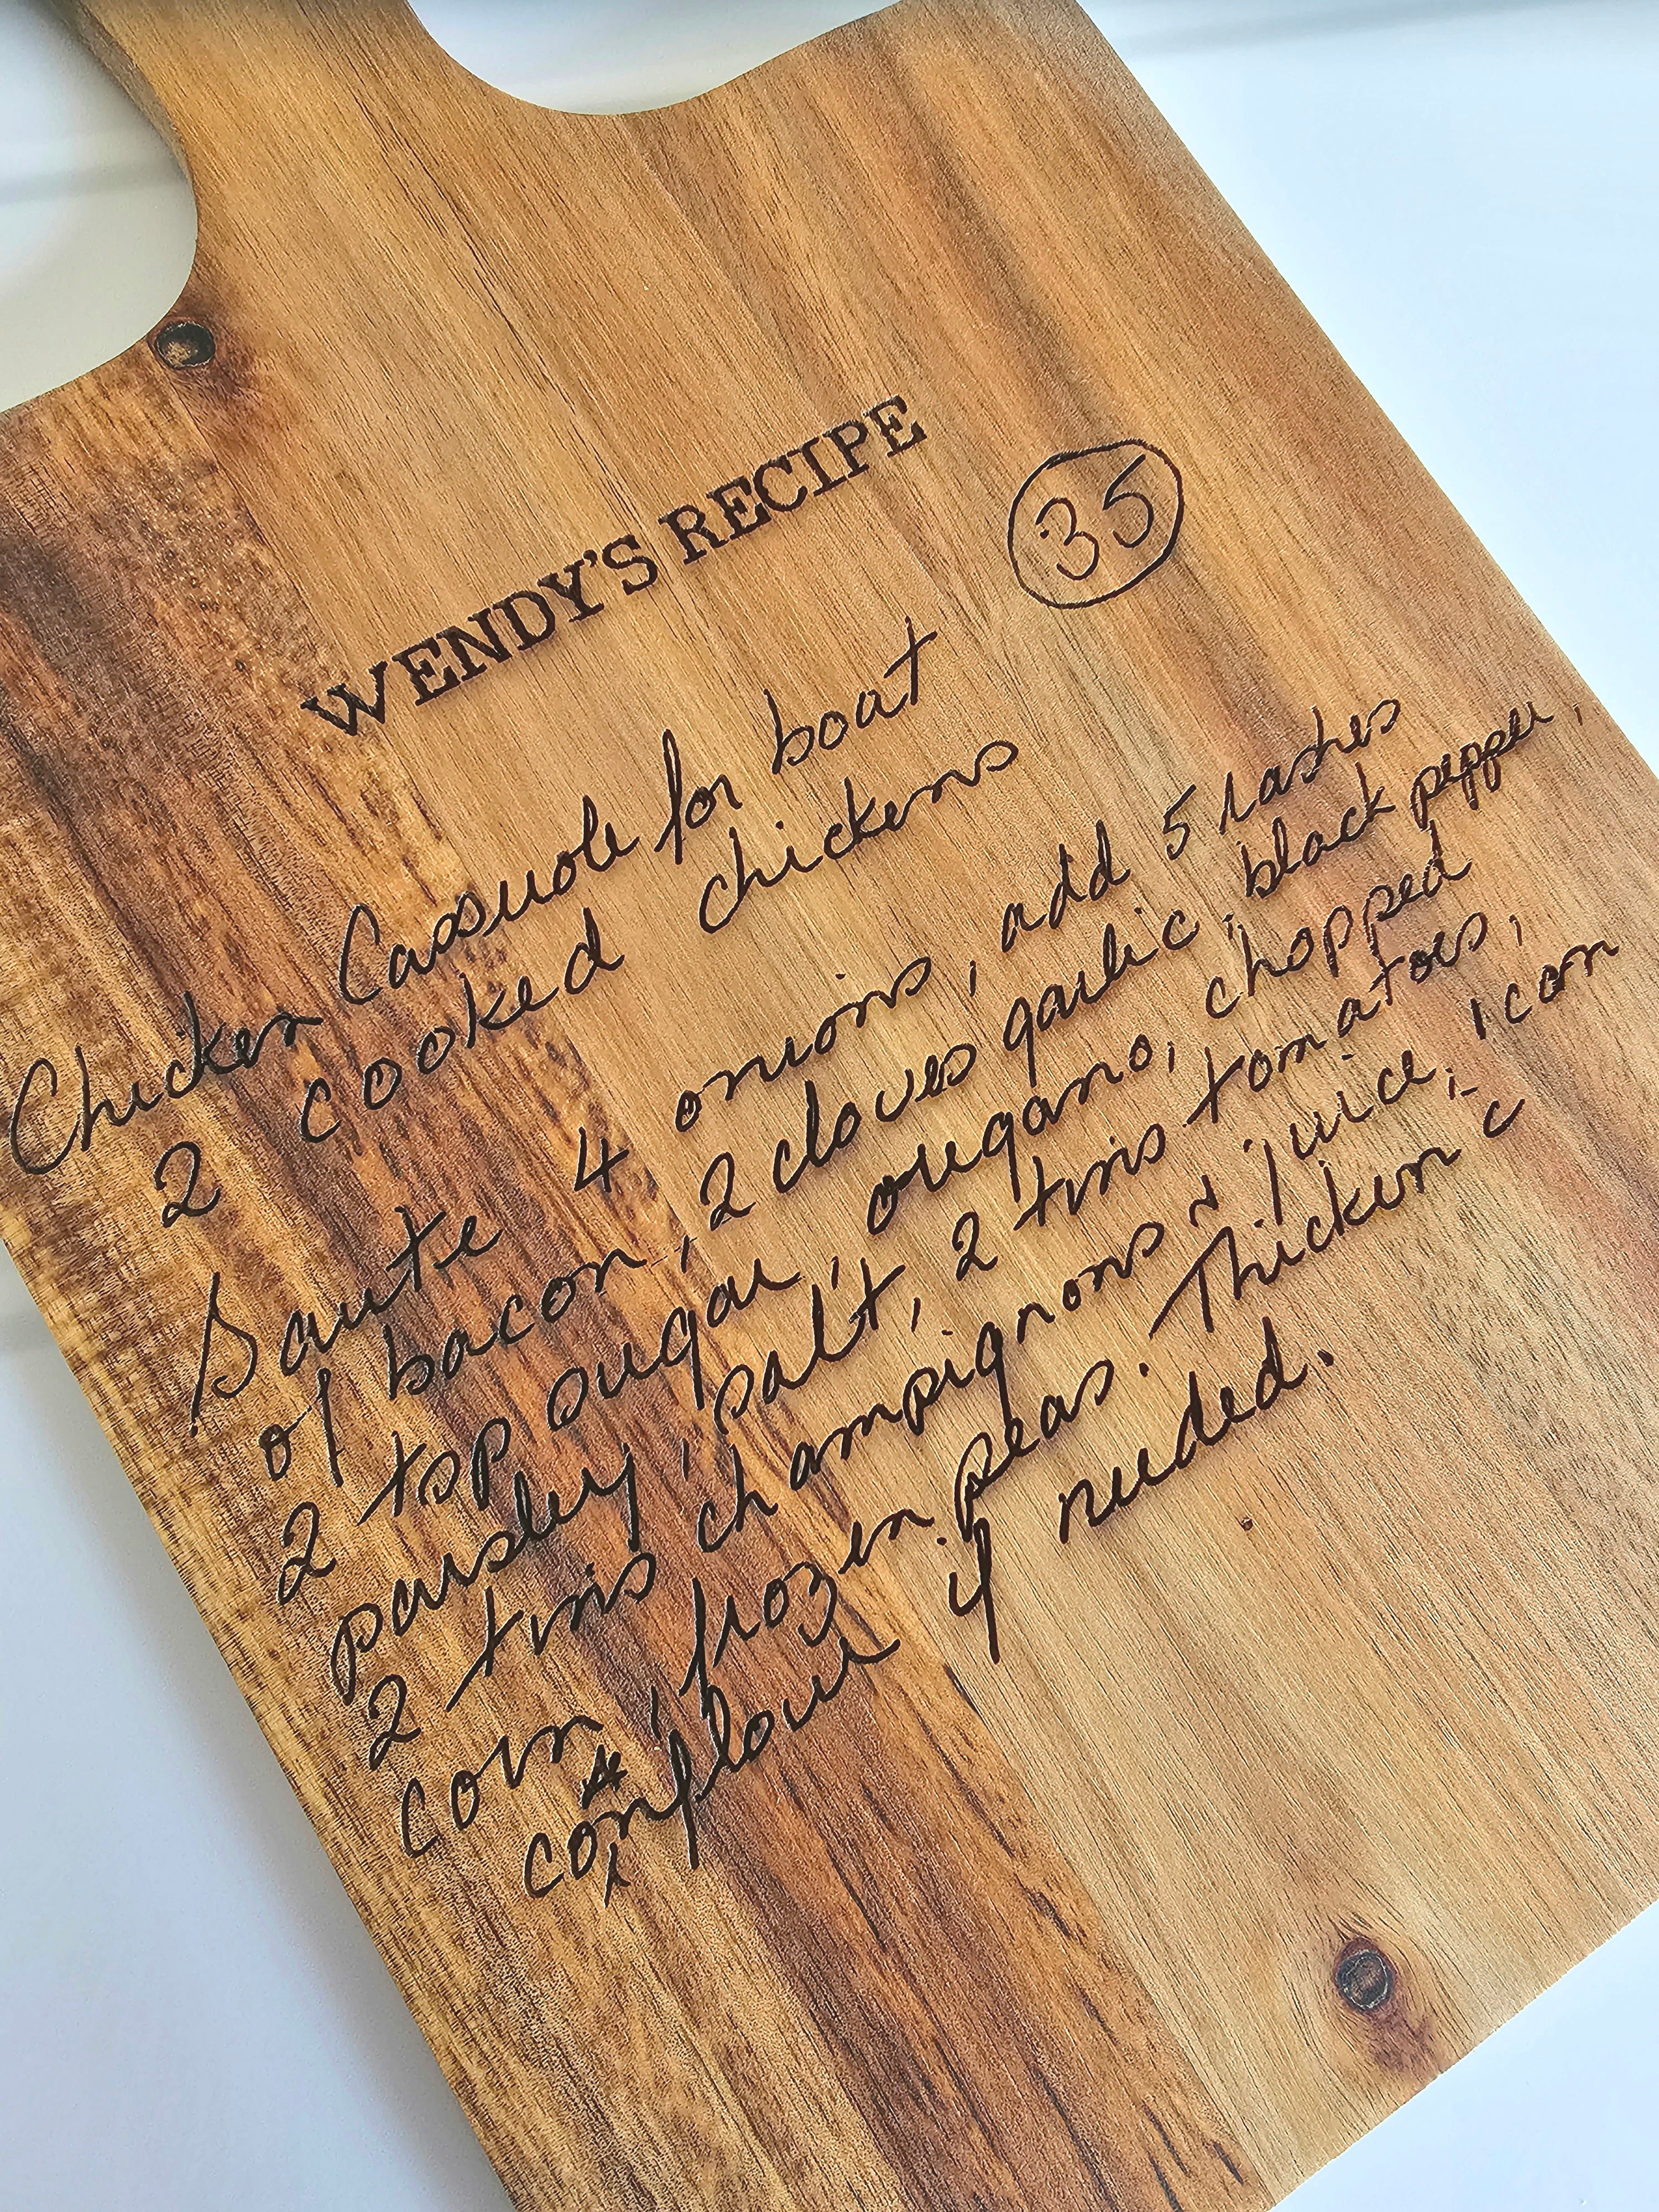 WENDY'S RECIPE
35
Chicken Casserole for boat
2 cooked chickens
Saute 4 onions, add 5 rashes
of bacon, 2 cloves garlic, black pepper,
2 tsp sugar, oregano, chopped
parsley, salt, 2 tins tomatoes,
2 tins champignons N juice, 1 can
corn, frozen peas. Thicken c
cornflour if needed.